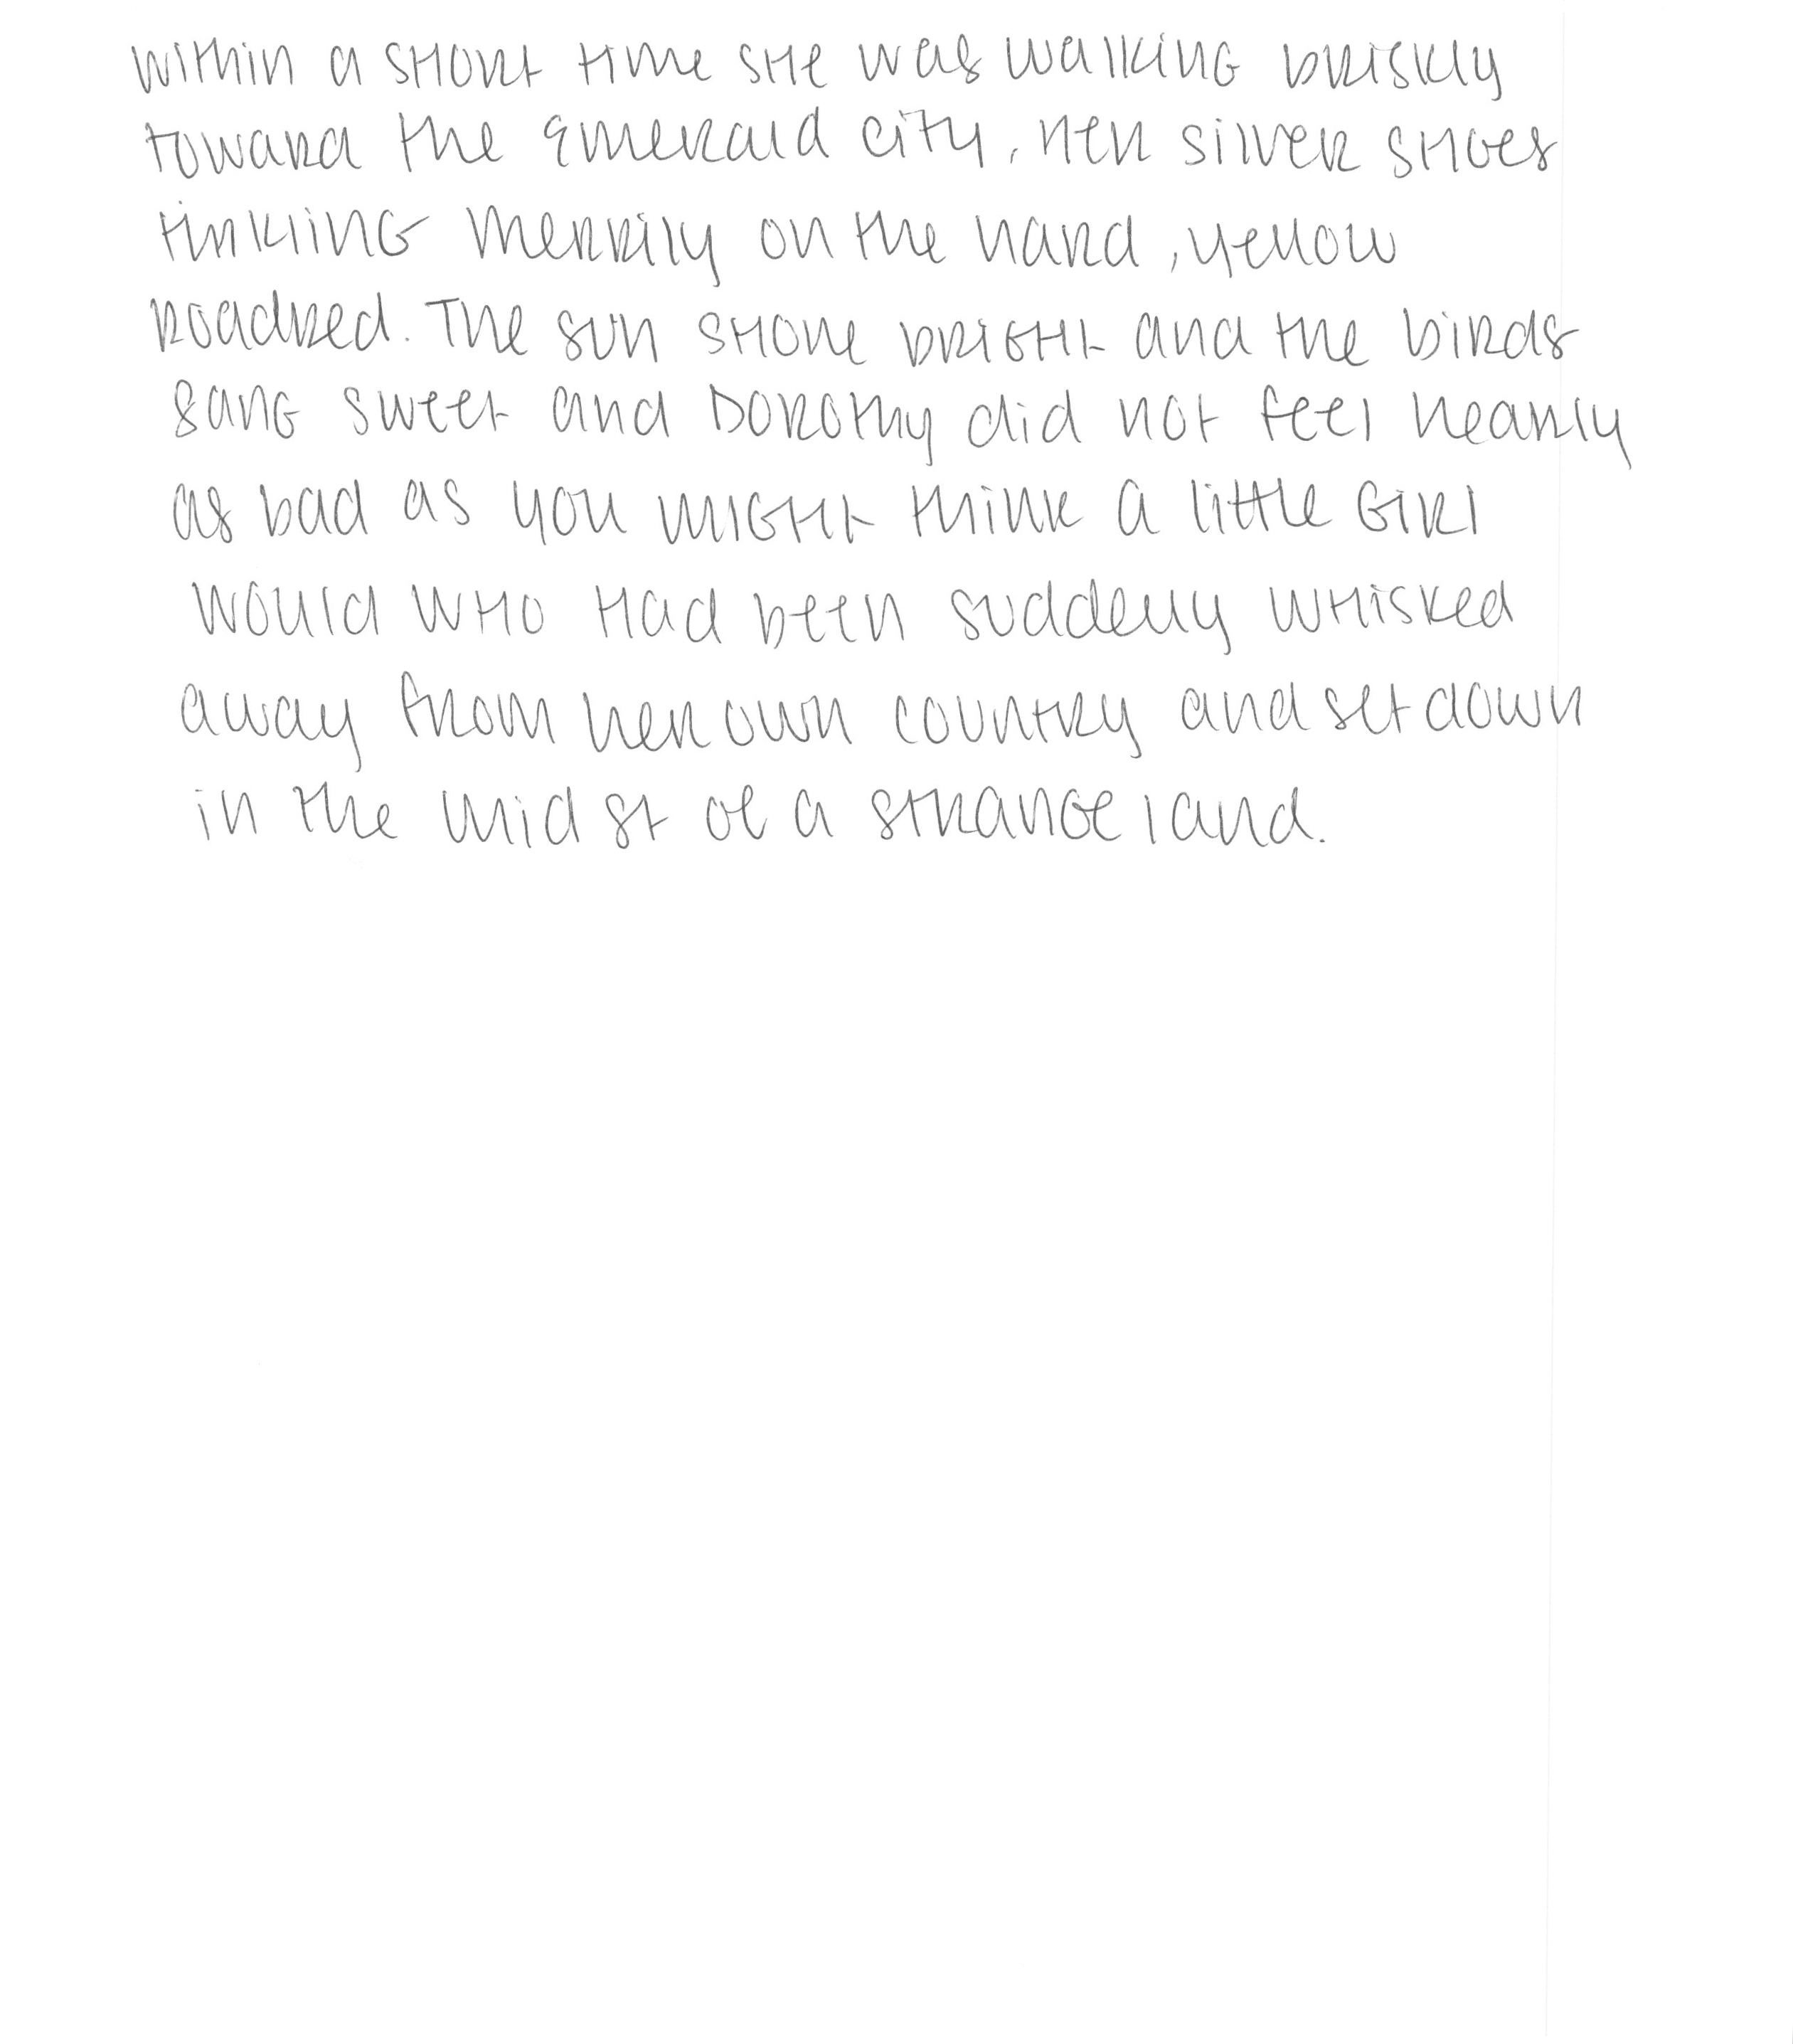 within a short time she was walking briskly
toward the Emerald City, her silver shoes
tinkling merrily on the hard, yellow
roadred. The sun shone bright and the birds
sang sweet and Dorothy did not feel nearly
as bad as you might think a little girl
would who had been suddenly whisked
away from her own country and set down
in the midst of a strange land.